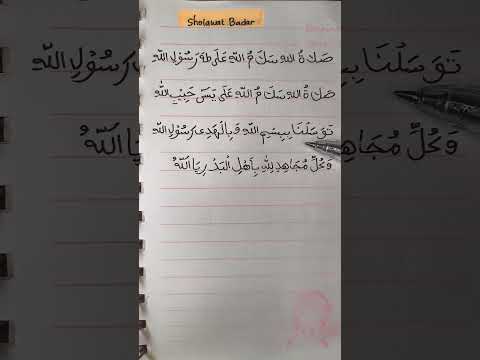 Sholawat Badar
صَلَاةُ الله سَلَامُ الله عَلَى طٰهَ رَسُوْلِ الله
صَلَاةُ الله سَلَامُ الله عَلَى يٰسَ حَبِيْبِ الله
تَوَسَّلْنَا بِبِسْمِ الله وَبِالْهَادِى رَسُوْلِ الله
وَكُلِّ مُجَاهِدٍ لِلّٰهِ بِأَهْلِ الْبَدْرِ يَا اَللّٰهُ